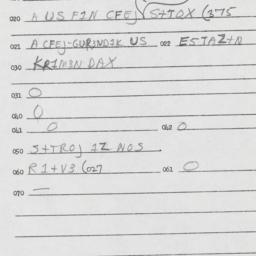 020 A US FIN CFEJ S+TOX (375
021 A CFEJ-GURINDIK US 022 ESTAZ+A
030 KRIMIN DAX
031 0
040 0
041 0 042 0
050 S+TROJ IZ NOS
060 RI+V3 (027 061 0
070 —